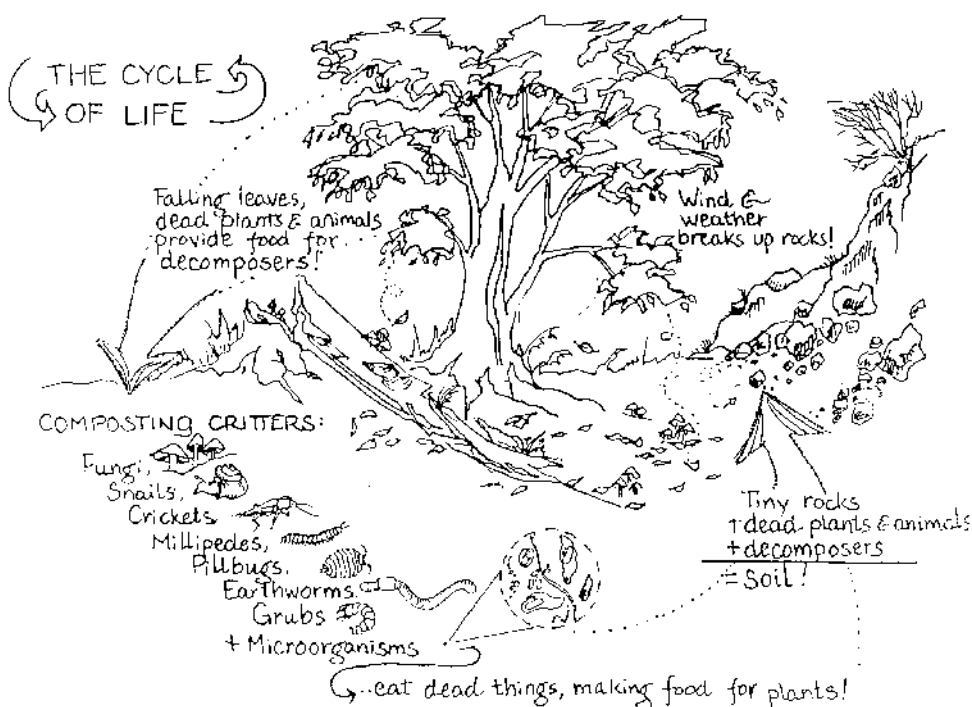 THE CYCLE
OF LIFE
Falling leaves,
dead plants & animals
provide food for
decomposers!
Wind &
weather
breaks up rocks!
COMPOSTING CRITTERS:
Fungi,
Snails,
Crickets
Millipedes,
Pillbugs,
Earthworms
Grubs
+ Microorganisms
...eat dead things, making food for plants!
Tiny rocks
+ dead plants & animals
+ decomposers
= Soil!